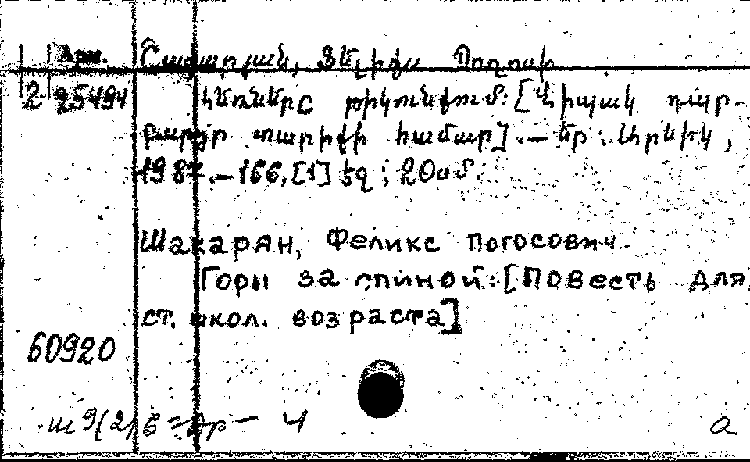 Арм.
2 95494
Շաքարյան, Ֆելիքս Պողոսի
Լեռները թիկունքում: [Վիպակ դպր-
տարիքի համար].— Եր.: Արևիկ,
1987.— 166, [1] էջ; 20սմ.
Шакарян, Феликс Погосович.
Горы за спиной: [Повесть для
ст. школ. возраста]
60920
а